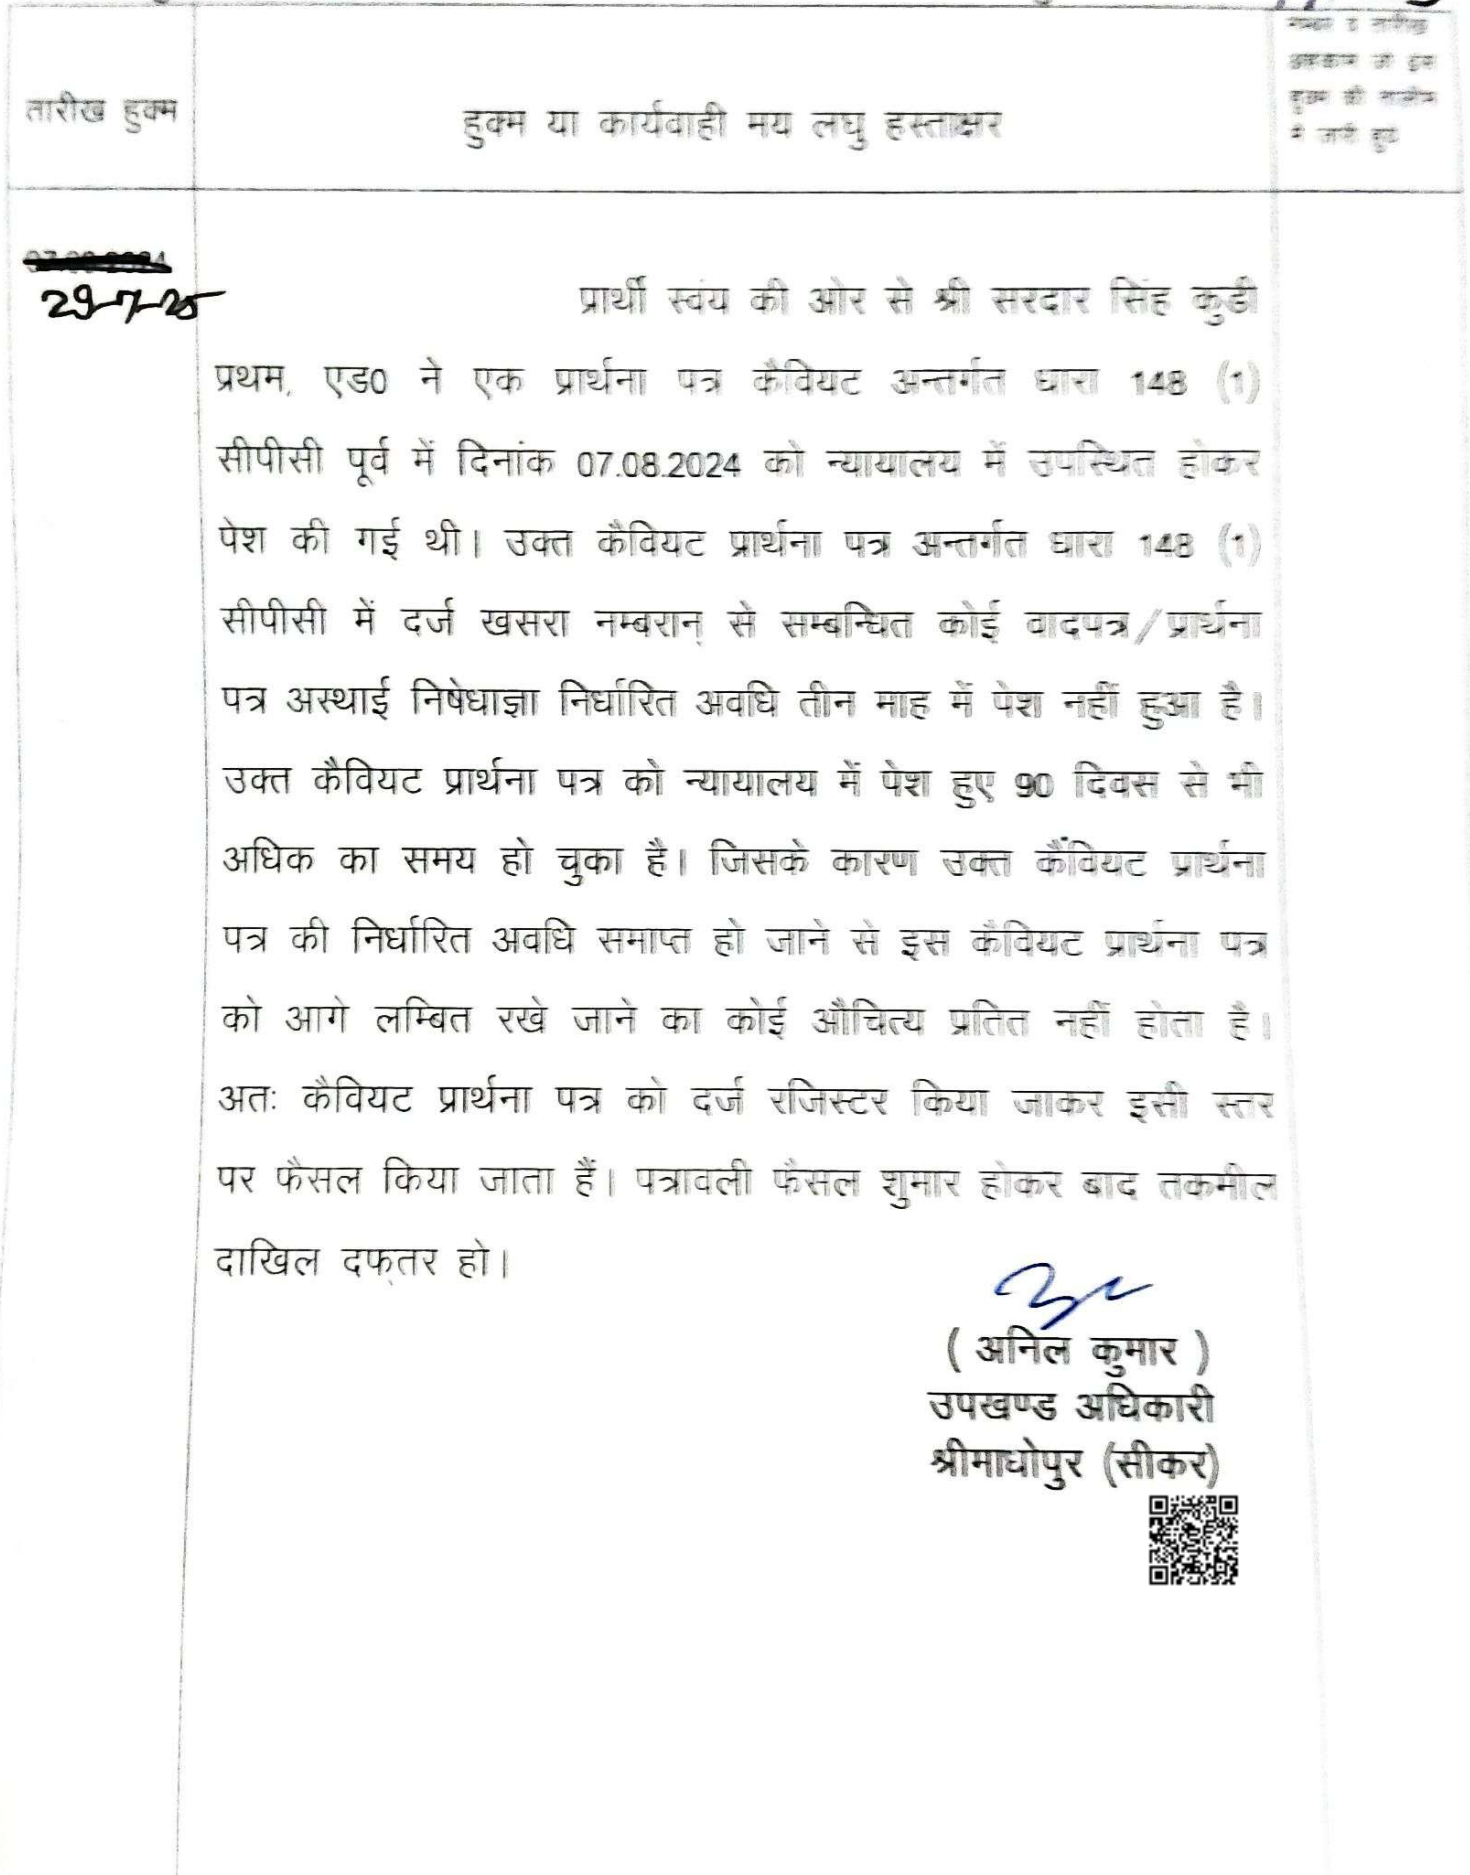 तारीख हुक्म
हुक्म या कार्यवाही मय लघु हस्ताक्षर
नम्बर व तारीख
अहकाम जो इस
हुक्म की तामील
में जारी हुए
29-7-25
प्रार्थी स्वंय की ओर से श्री सरदार सिंह कुडी
प्रथम, एड0 ने एक प्रार्थना पत्र कैवियट अन्तर्गत धारा 148 (1)
सीपीसी पूर्व में दिनांक 07.08.2024 को न्यायालय में उपस्थित होकर
पेश की गई थी। उक्त कैवियट प्रार्थना पत्र अन्तर्गत धारा 148 (1)
सीपीसी में दर्ज खसरा नम्बरान् से सम्बन्धित कोई वादपत्र/प्रार्थना
पत्र अस्थाई निषेधाज्ञा निर्धारित अवधि तीन माह में पेश नहीं हुआ है।
उक्त कैवियट प्रार्थना पत्र को न्यायालय में पेश हुए 90 दिवस से भी
अधिक का समय हो चुका है। जिसके कारण उक्त कैंवियट प्रार्थना
पत्र की निर्धारित अवधि समाप्त हो जाने से इस कैवियट प्रार्थना पत्र
को आगे लम्बित रखे जाने का कोई औचित्य प्रतित नहीं होता है।
अतः कैवियट प्रार्थना पत्र को दर्ज रजिस्टर किया जाकर इसी स्तर
पर फैसल किया जाता हैं। पत्रावली फैसल शुमार होकर बाद तकमील
दाखिल दफ्तर हो।
( अनिल कुमार )
उपखण्ड अधिकारी
श्रीमाधोपुर (सीकर)